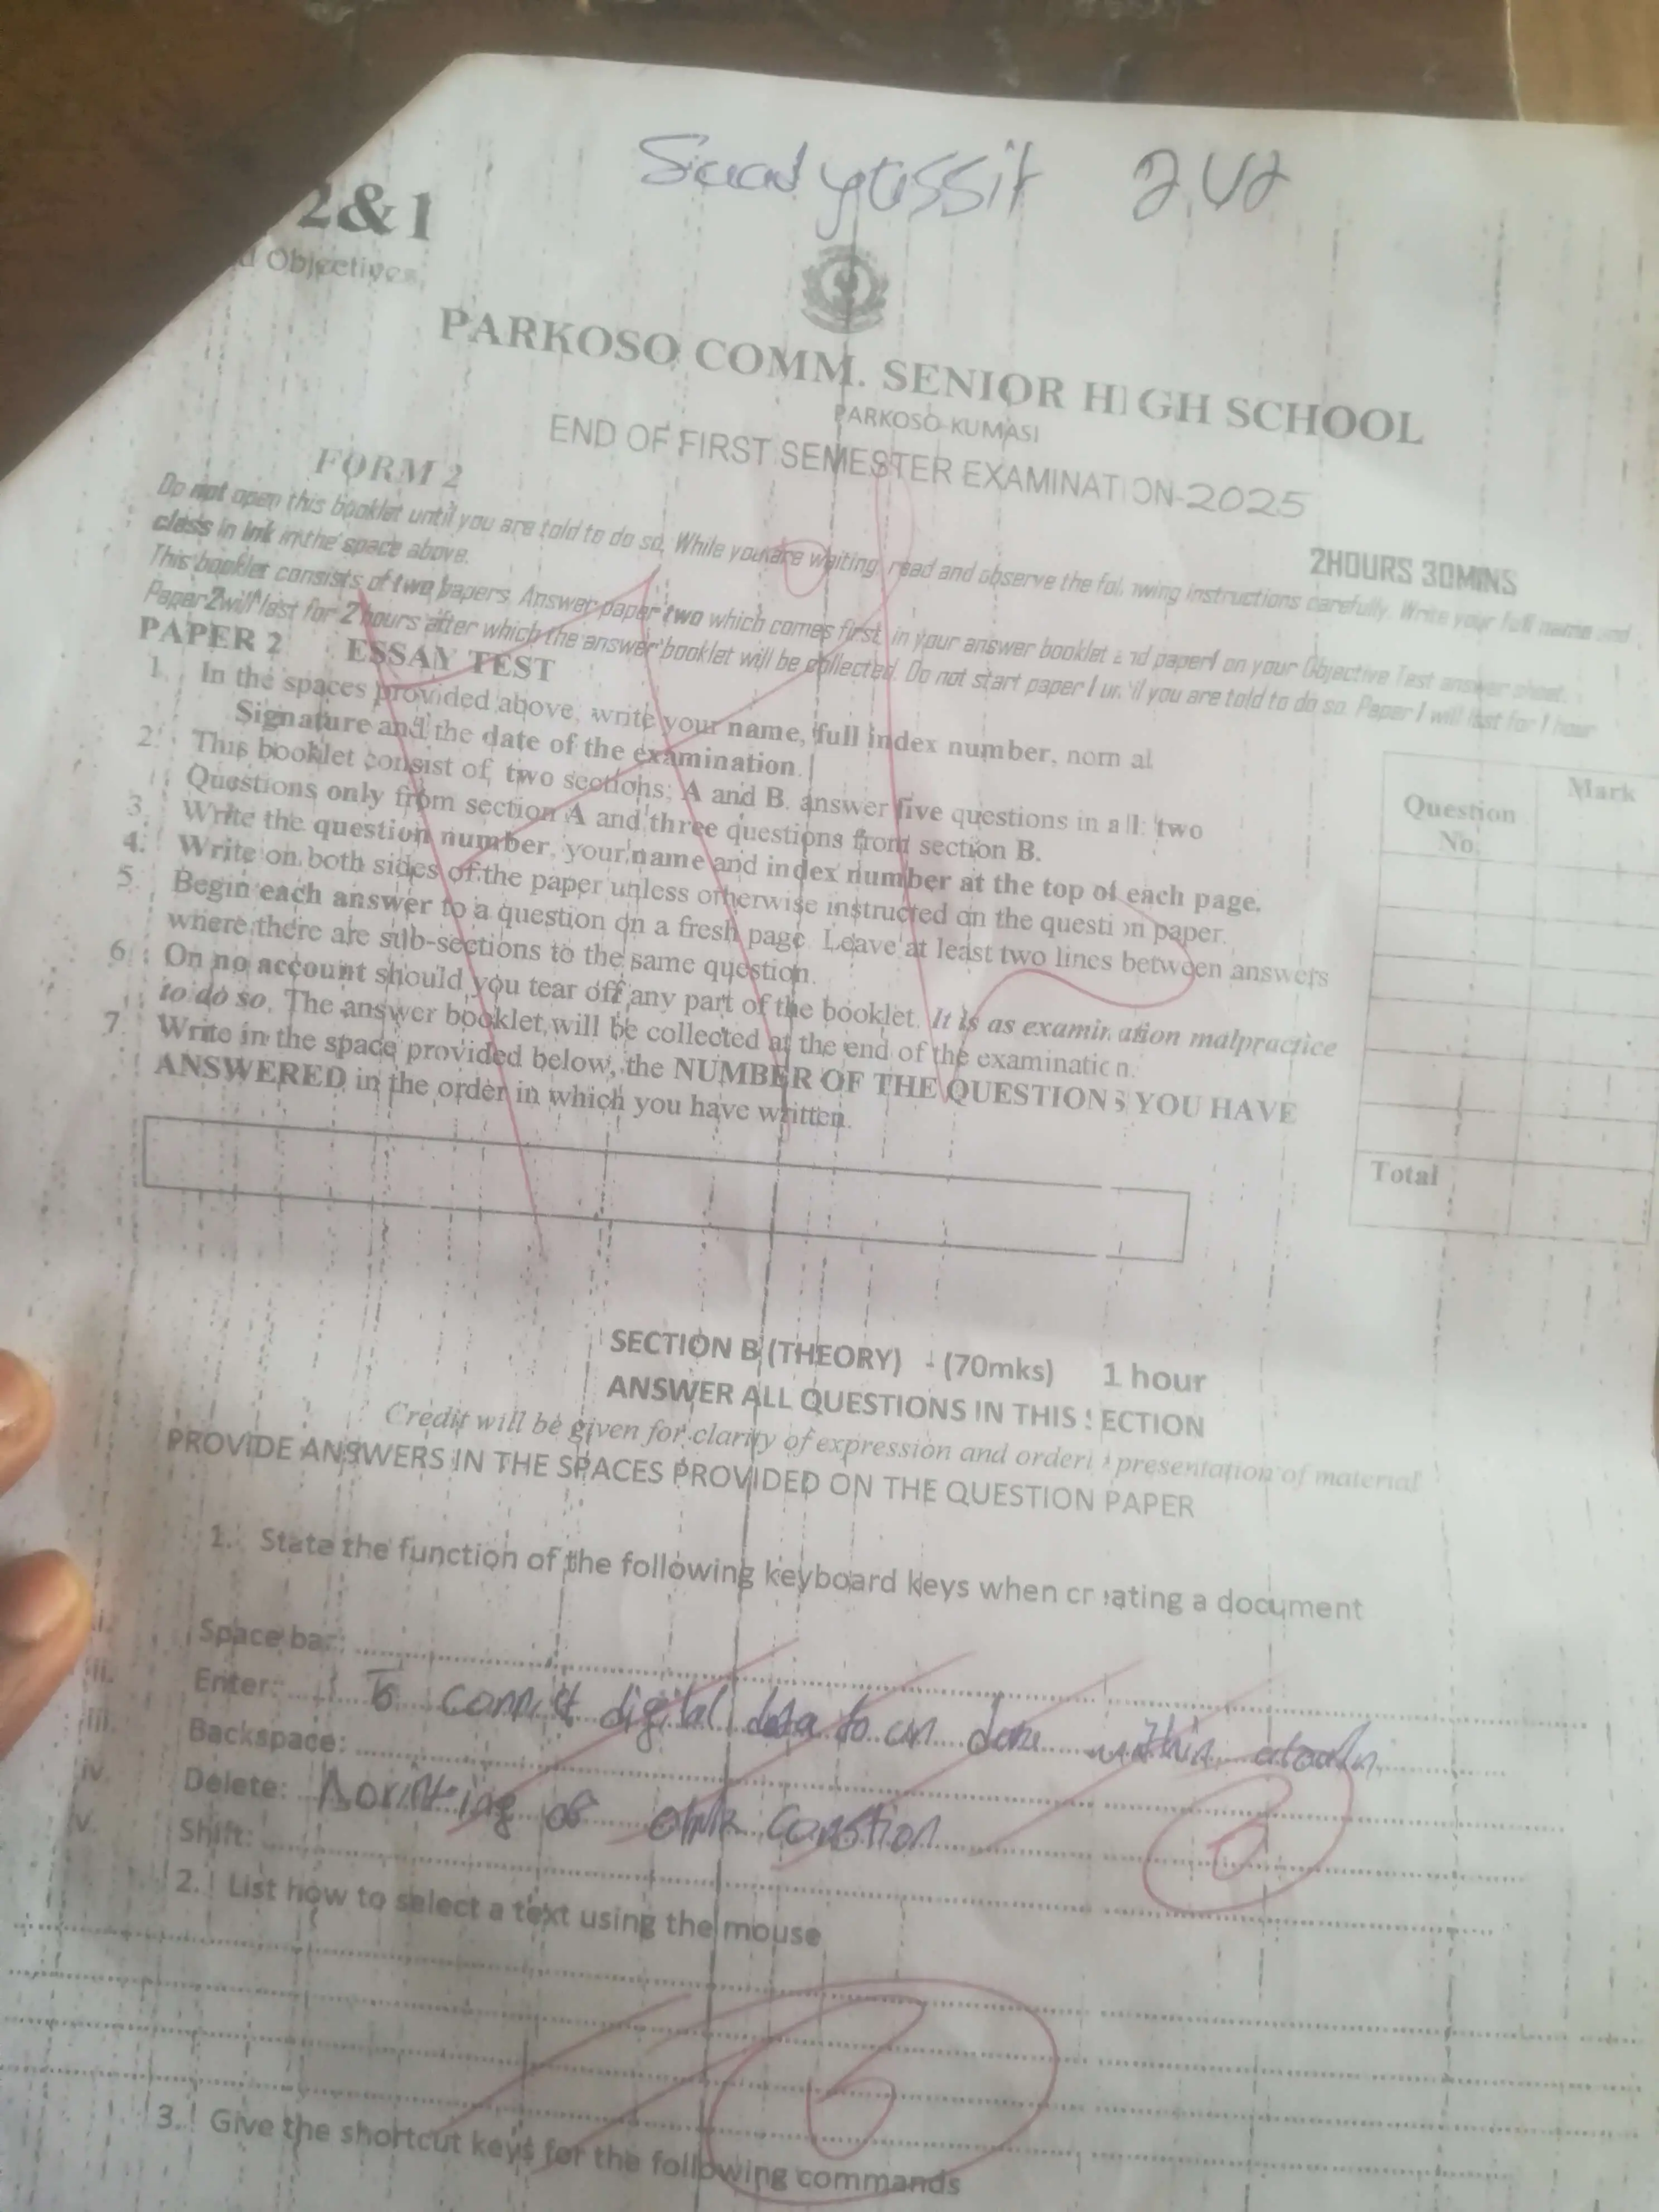 2&1
d Objectives
PARKOSO COMM. SENIOR HIGH SCHOOL
PARKOSO-KUMASI
END OF FIRST SEMESTER EXAMINATION-2025
FORM 2
2HOURS 30MINS
Do not open this booklet until you are told to do so. While you are waiting, read and observe the following instructions carefully. Write your full name and
class in ink in the space above.
This booklet consists of two papers. Answer paper two which comes first, in your answer booklet and paper1 on your Objective Test answer sheet.
Paper 2 will last for 2 hours after which the answer booklet will be collected. Do not start paper 1 until you are told to do so. Paper 1 will last for 1 hour
PAPER 2 ESSAY TEST
1. In the spaces provided above, write your name, full index number, nom al
Signature and the date of the examination.
2. This booklet consist of two sections; A and B. answer five questions in all: two
Questions only from section A and three questions from section B.
3. Write the question number, your name and index number at the top of each page.
4. Write on both sides of the paper unless otherwise instructed on the question paper.
5. Begin each answer to a question on a fresh page. Leave at least two lines between answers
where there are sub-sections to the same question.
6. On no account should you tear off any part of the booklet. It is as examination malpractice
to do so. The answer booklet will be collected at the end of the examination.
7. Write in the space provided below, the NUMBER OF THE QUESTIONS YOU HAVE
ANSWERED in the order in which you have written.
Question No. Mark
Total
SECTION B (THEORY) - (70mks) 1 hour
ANSWER ALL QUESTIONS IN THIS SECTION
Credit will be given for clarity of expression and orderly presentation of material
PROVIDE ANSWERS IN THE SPACES PROVIDED ON THE QUESTION PAPER
1. State the function of the following keyboard keys when creating a document
i. Space bar:
ii. Enter: To digital data to
iii. Backspace:
iv. Delete: of
v. Shift:
2. List how to select a text using the mouse
3. Give the shortcut keys for the following commands